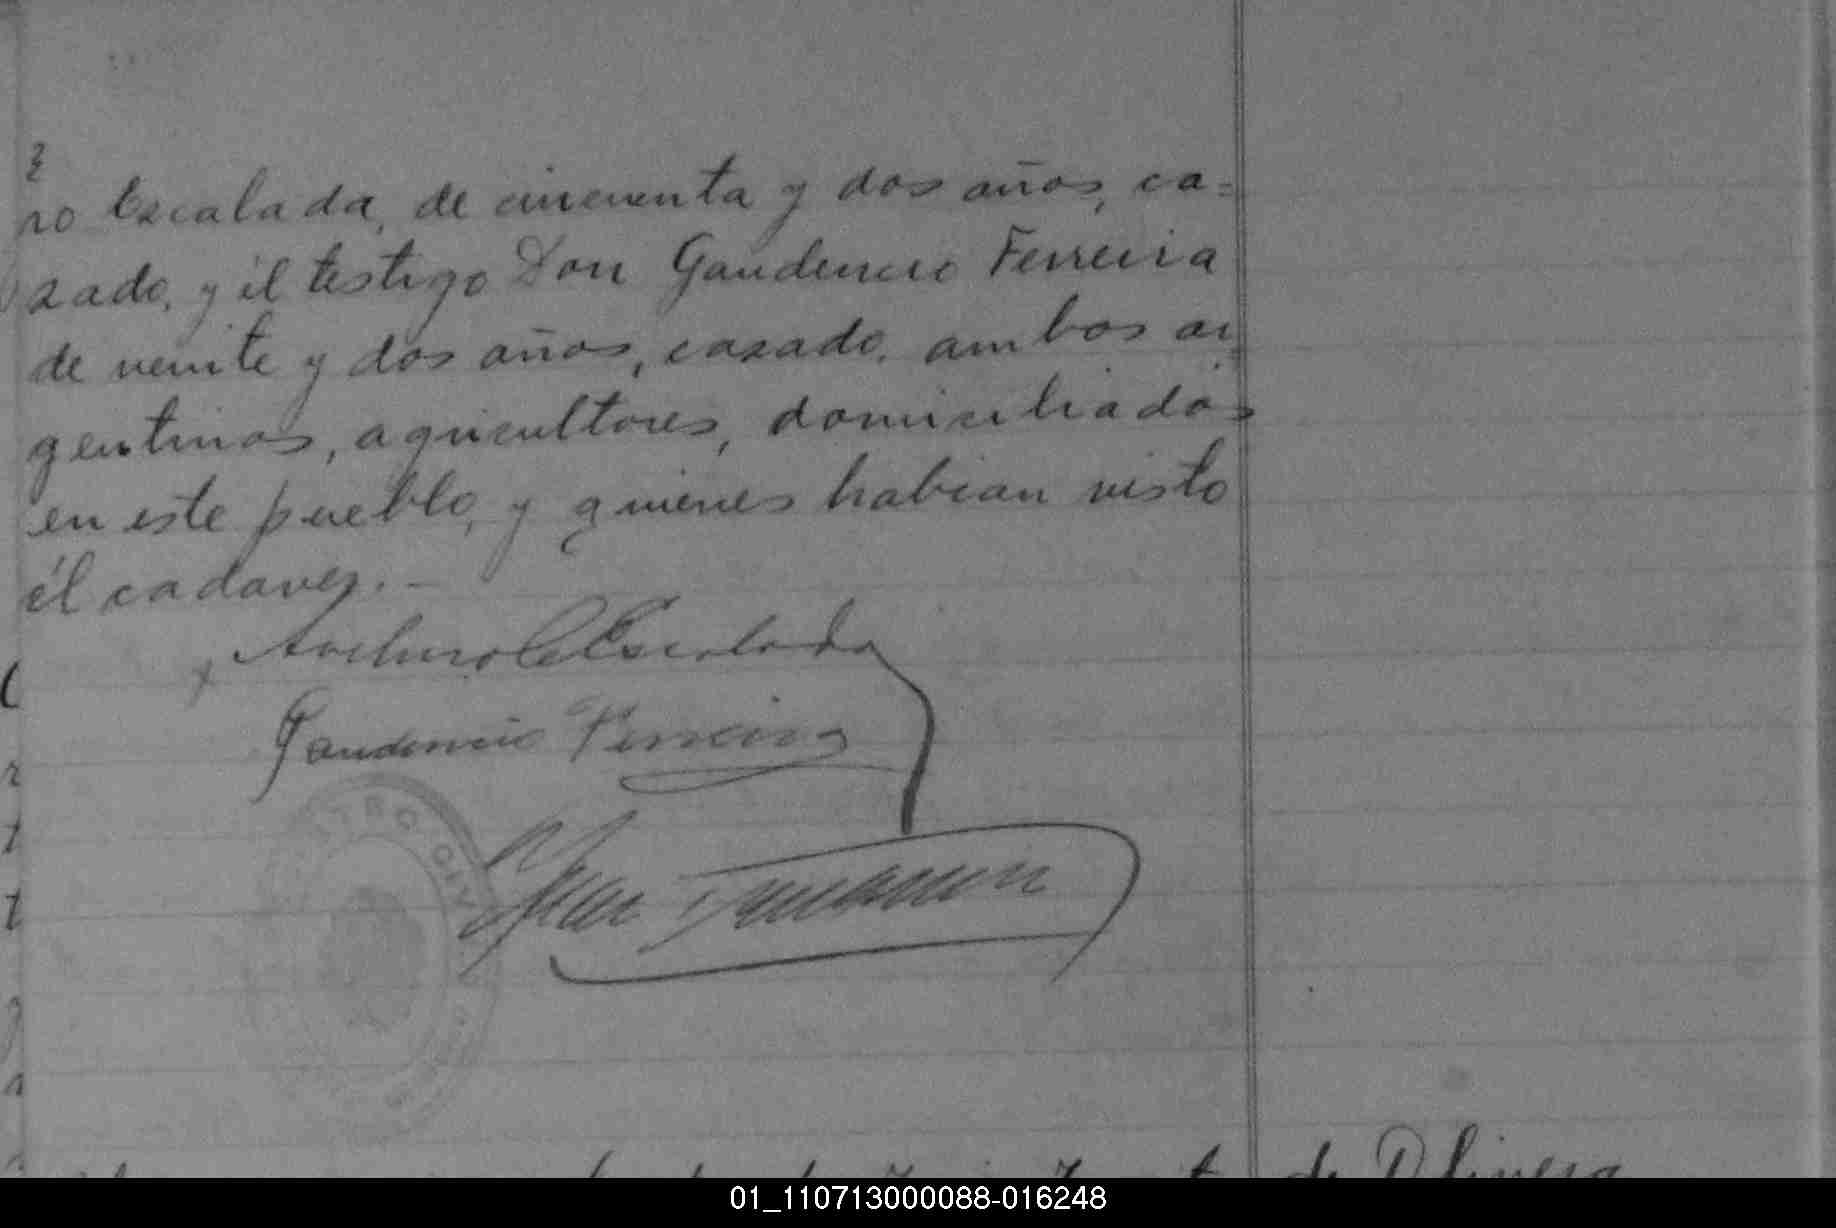 ro Escalada, de cincuenta y dos años, ca=
sado, y él testigo Don Gaudencio Ferreira
de veinte y dos años, casado, ambos ar=
gentinos, agricultores, domiciliados
en este pueblo, y quienes habian visto
él cadaver. —
Escalada
Gaudencio Ferreira
Juan
TRO CIVIL
de Olivera
01_110713000088-016248